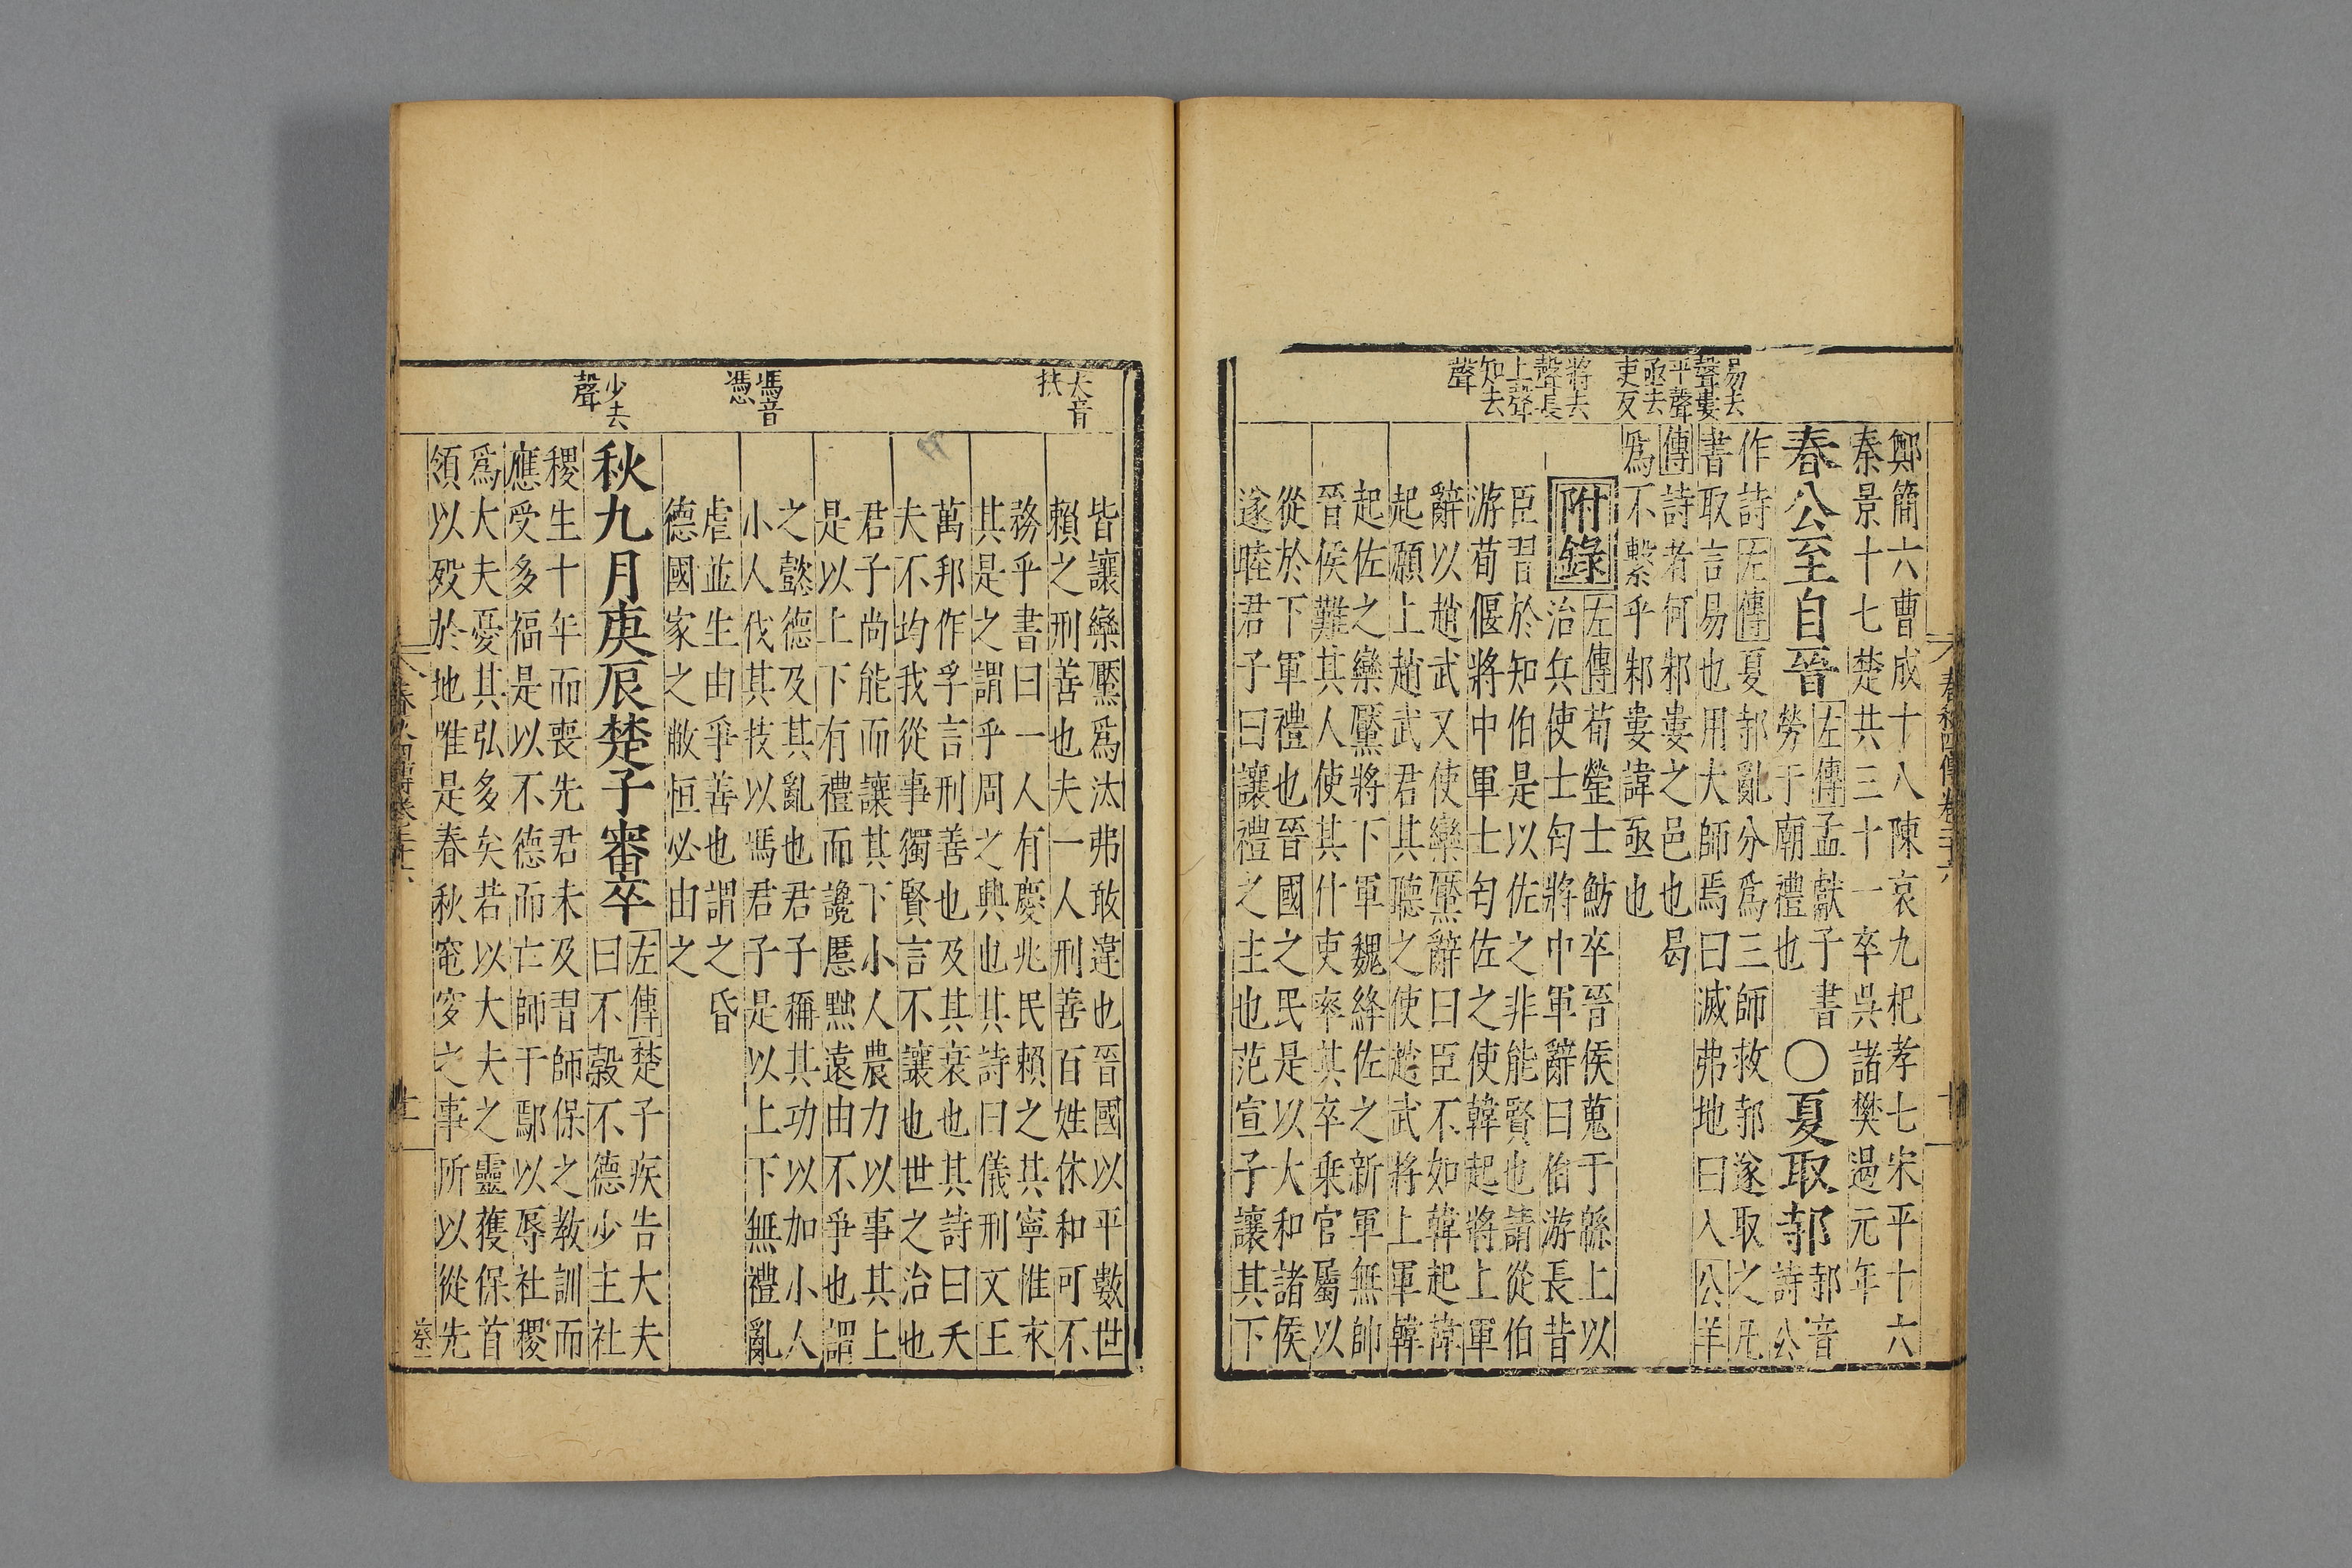 春秋四傳卷二十六
十
易去
聲婁
平聲
亟去
吏反
將去
聲長
上聲
知去
聲
鄭簡六曹成十八陳哀九杞孝七宋平十六
秦景十七楚共三十一卒吳諸樊遏元年
春公至自晉
左傳孟獻子書
勞于廟禮也
○夏取邿
邿音
詩公
作詩左傳夏邿亂分為三師救邿遂取之凡
書取言易也用大師焉曰滅弗地曰入公羊
傳詩者何邾婁之邑也曷
爲不繫乎邾婁諱亟也
附錄
左傳荀罃士魴卒晉侯蒐于緜上以
治兵使士匄將中軍辭曰伯游長昔
臣習於知伯是以佐之非能賢也請從伯
游荀偃將中軍士匄佐之使韓起將上軍
辭以趙武又使欒黶辭曰臣不如韓起韓
起願上趙武君其聽之使趙武將上軍韓
起佐之欒黶將下軍魏絳佐之新軍無帥
晉侯難其人使其什吏率其卒乗官屬以
從於下軍禮也晉國之民是以大和諸侯
遂睦君子曰讓禮之主也范宣子讓其下
夫音
扶
馮音
憑
少去
聲
皆讓欒黶爲汰弗敢違也晉國以平數世
賴之刑善也夫一人刑善百姓休和可不
務乎書曰一人有慶兆民賴之其寧惟永
其是之謂乎周之興也其詩曰儀刑文王
萬邦作孚言刑善也及其衰也其詩曰大
夫不均我從事獨賢言不讓也世之治也
君子尚能而讓其下小人農力以事其上
是以上下有禮而讒慝黜遠由不爭也謂
之懿德及其亂也君子稱其功以加小人
小人伐其技以馮君子是以上下無禮亂
虐並生由爭善也謂之昏
德國家之敝恒必由之
秋九月庚辰楚子審卒
左傳楚子疾告大夫
曰不穀不德少主社
稷生十年而喪先君未及習師保之教訓而
應受多福是以不德而亡師于鄢以辱社稷
爲大夫憂其弘多矣若以大夫之靈獲保首
領以歿於地唯是春秋窀穸之事所以從先